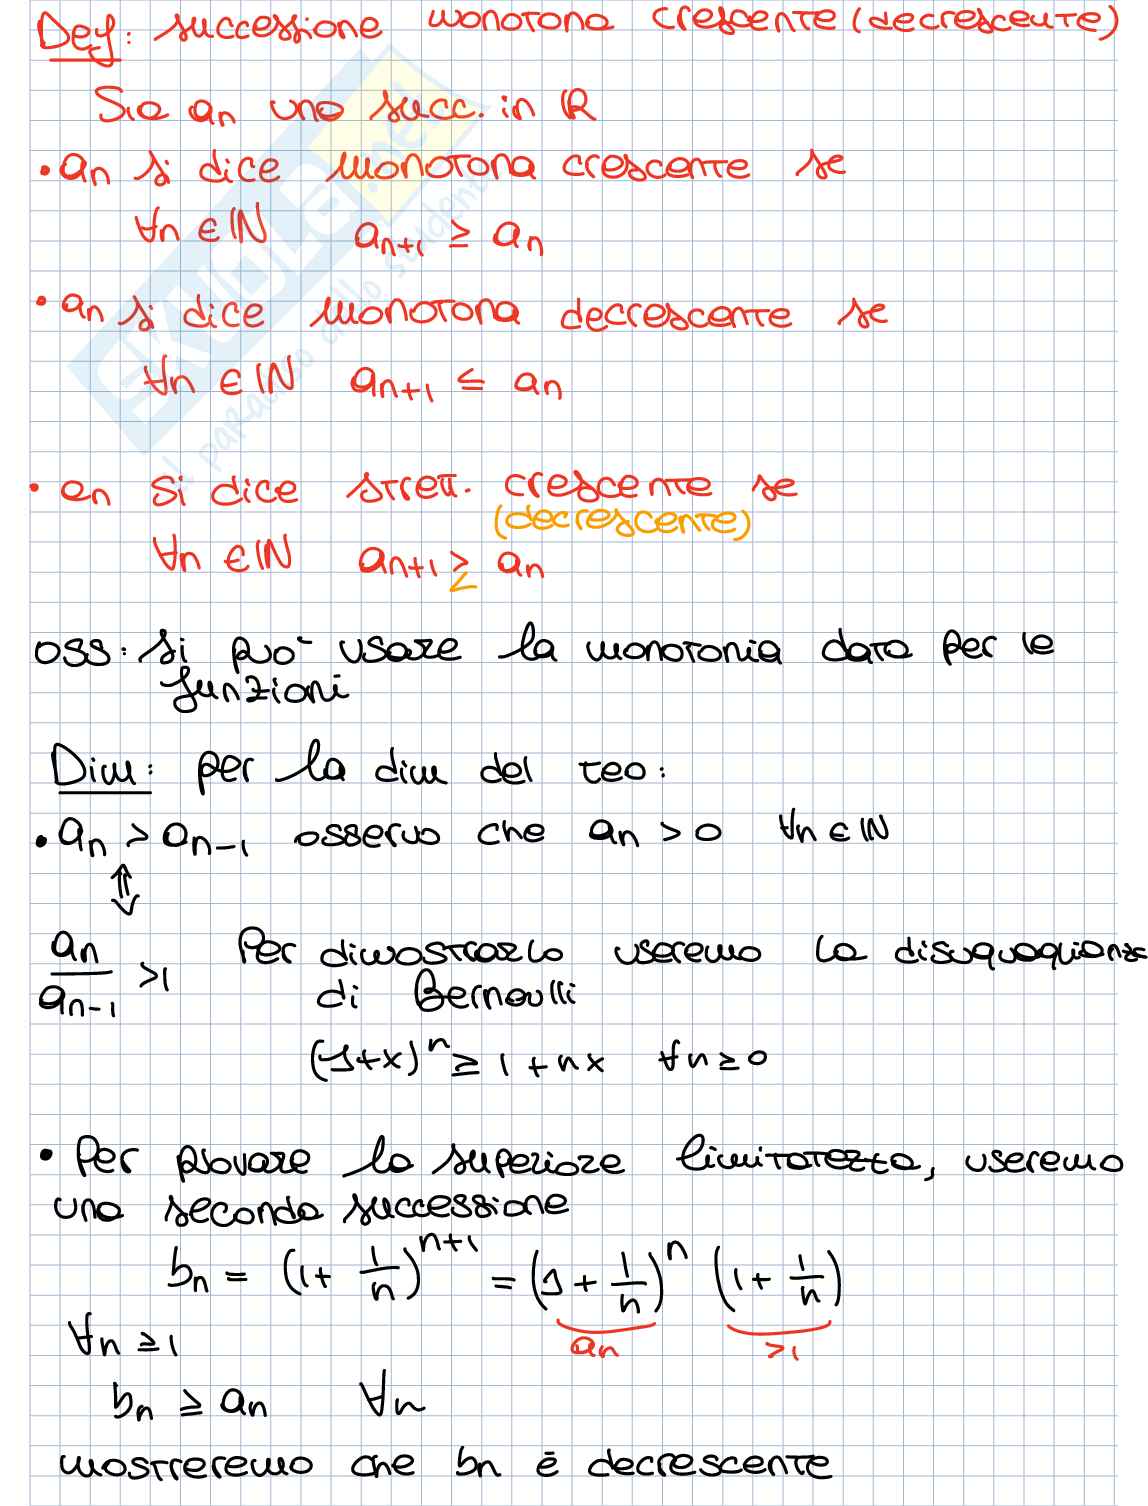 Def: successione monotona crescente (decrescente)
Sia an una succ. in ℝ
• an si dice monotona crescente se
∀n ∈ ℕ   an+1 ≥ an
• an si dice monotona decrescente se
∀n ∈ ℕ   an+1 ≤ an
• an si dice strett. crescente se
(decrescente)
∀n ∈ ℕ   an+1 > an
<
oss: si può usare la monotonia data per le
funzioni
Dim: per la dim del teo:
• an > an-1 osservo che an > 0   ∀n ∈ ℕ
⇕
an / an-1 > 1   Per dimostrarlo useremo la disuguaglianza
di Bernoulli
(1+x)^n ≥ 1 + nx   ∀n ≥ 0
• Per provare la superiore limitatezza, useremo
una seconda successione
bn = (1 + 1/n)^n+1 = (1 + 1/n)^n (1 + 1/n)
an   >1
∀n ≥ 1
bn ≥ an   ∀n
mostreremo che bn è decrescente
SKUOLA.net
il paradiso dello studente